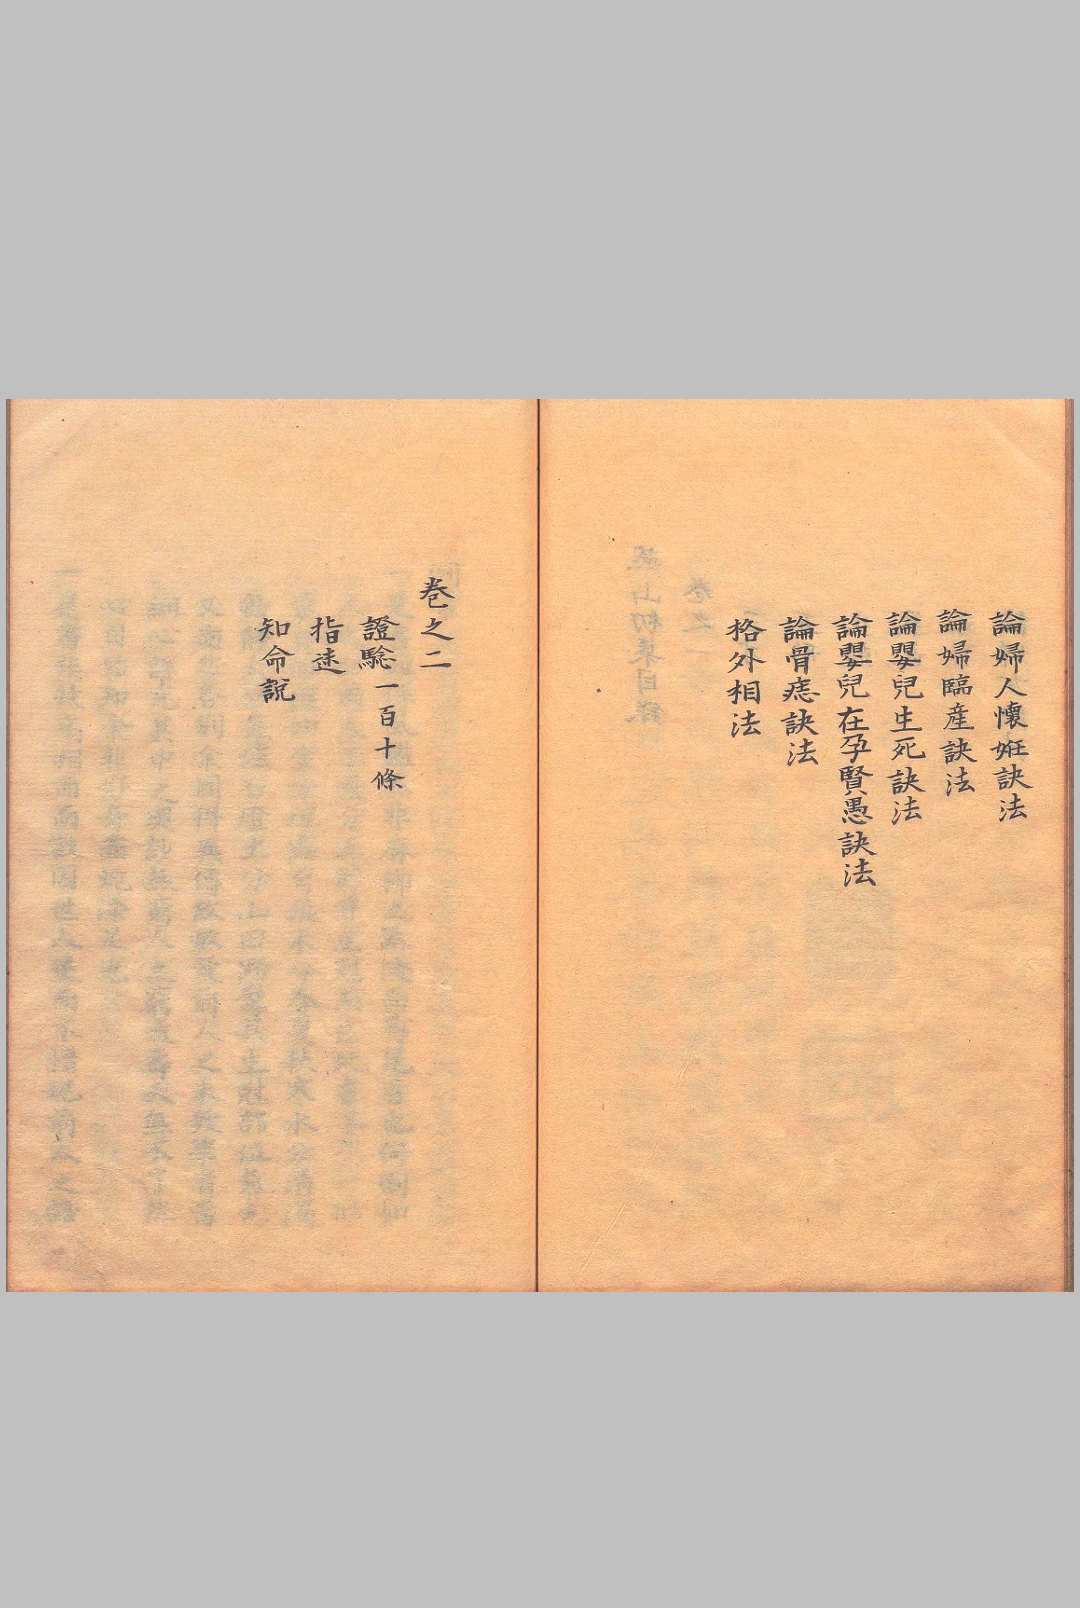 論婦人懷姙訣法
論婦臨産訣法
論嬰兒生死訣法
論嬰兒在孕賢愚訣法
論骨痣訣法
格外相法
卷之二
證驗一百十條
指迷
知命說